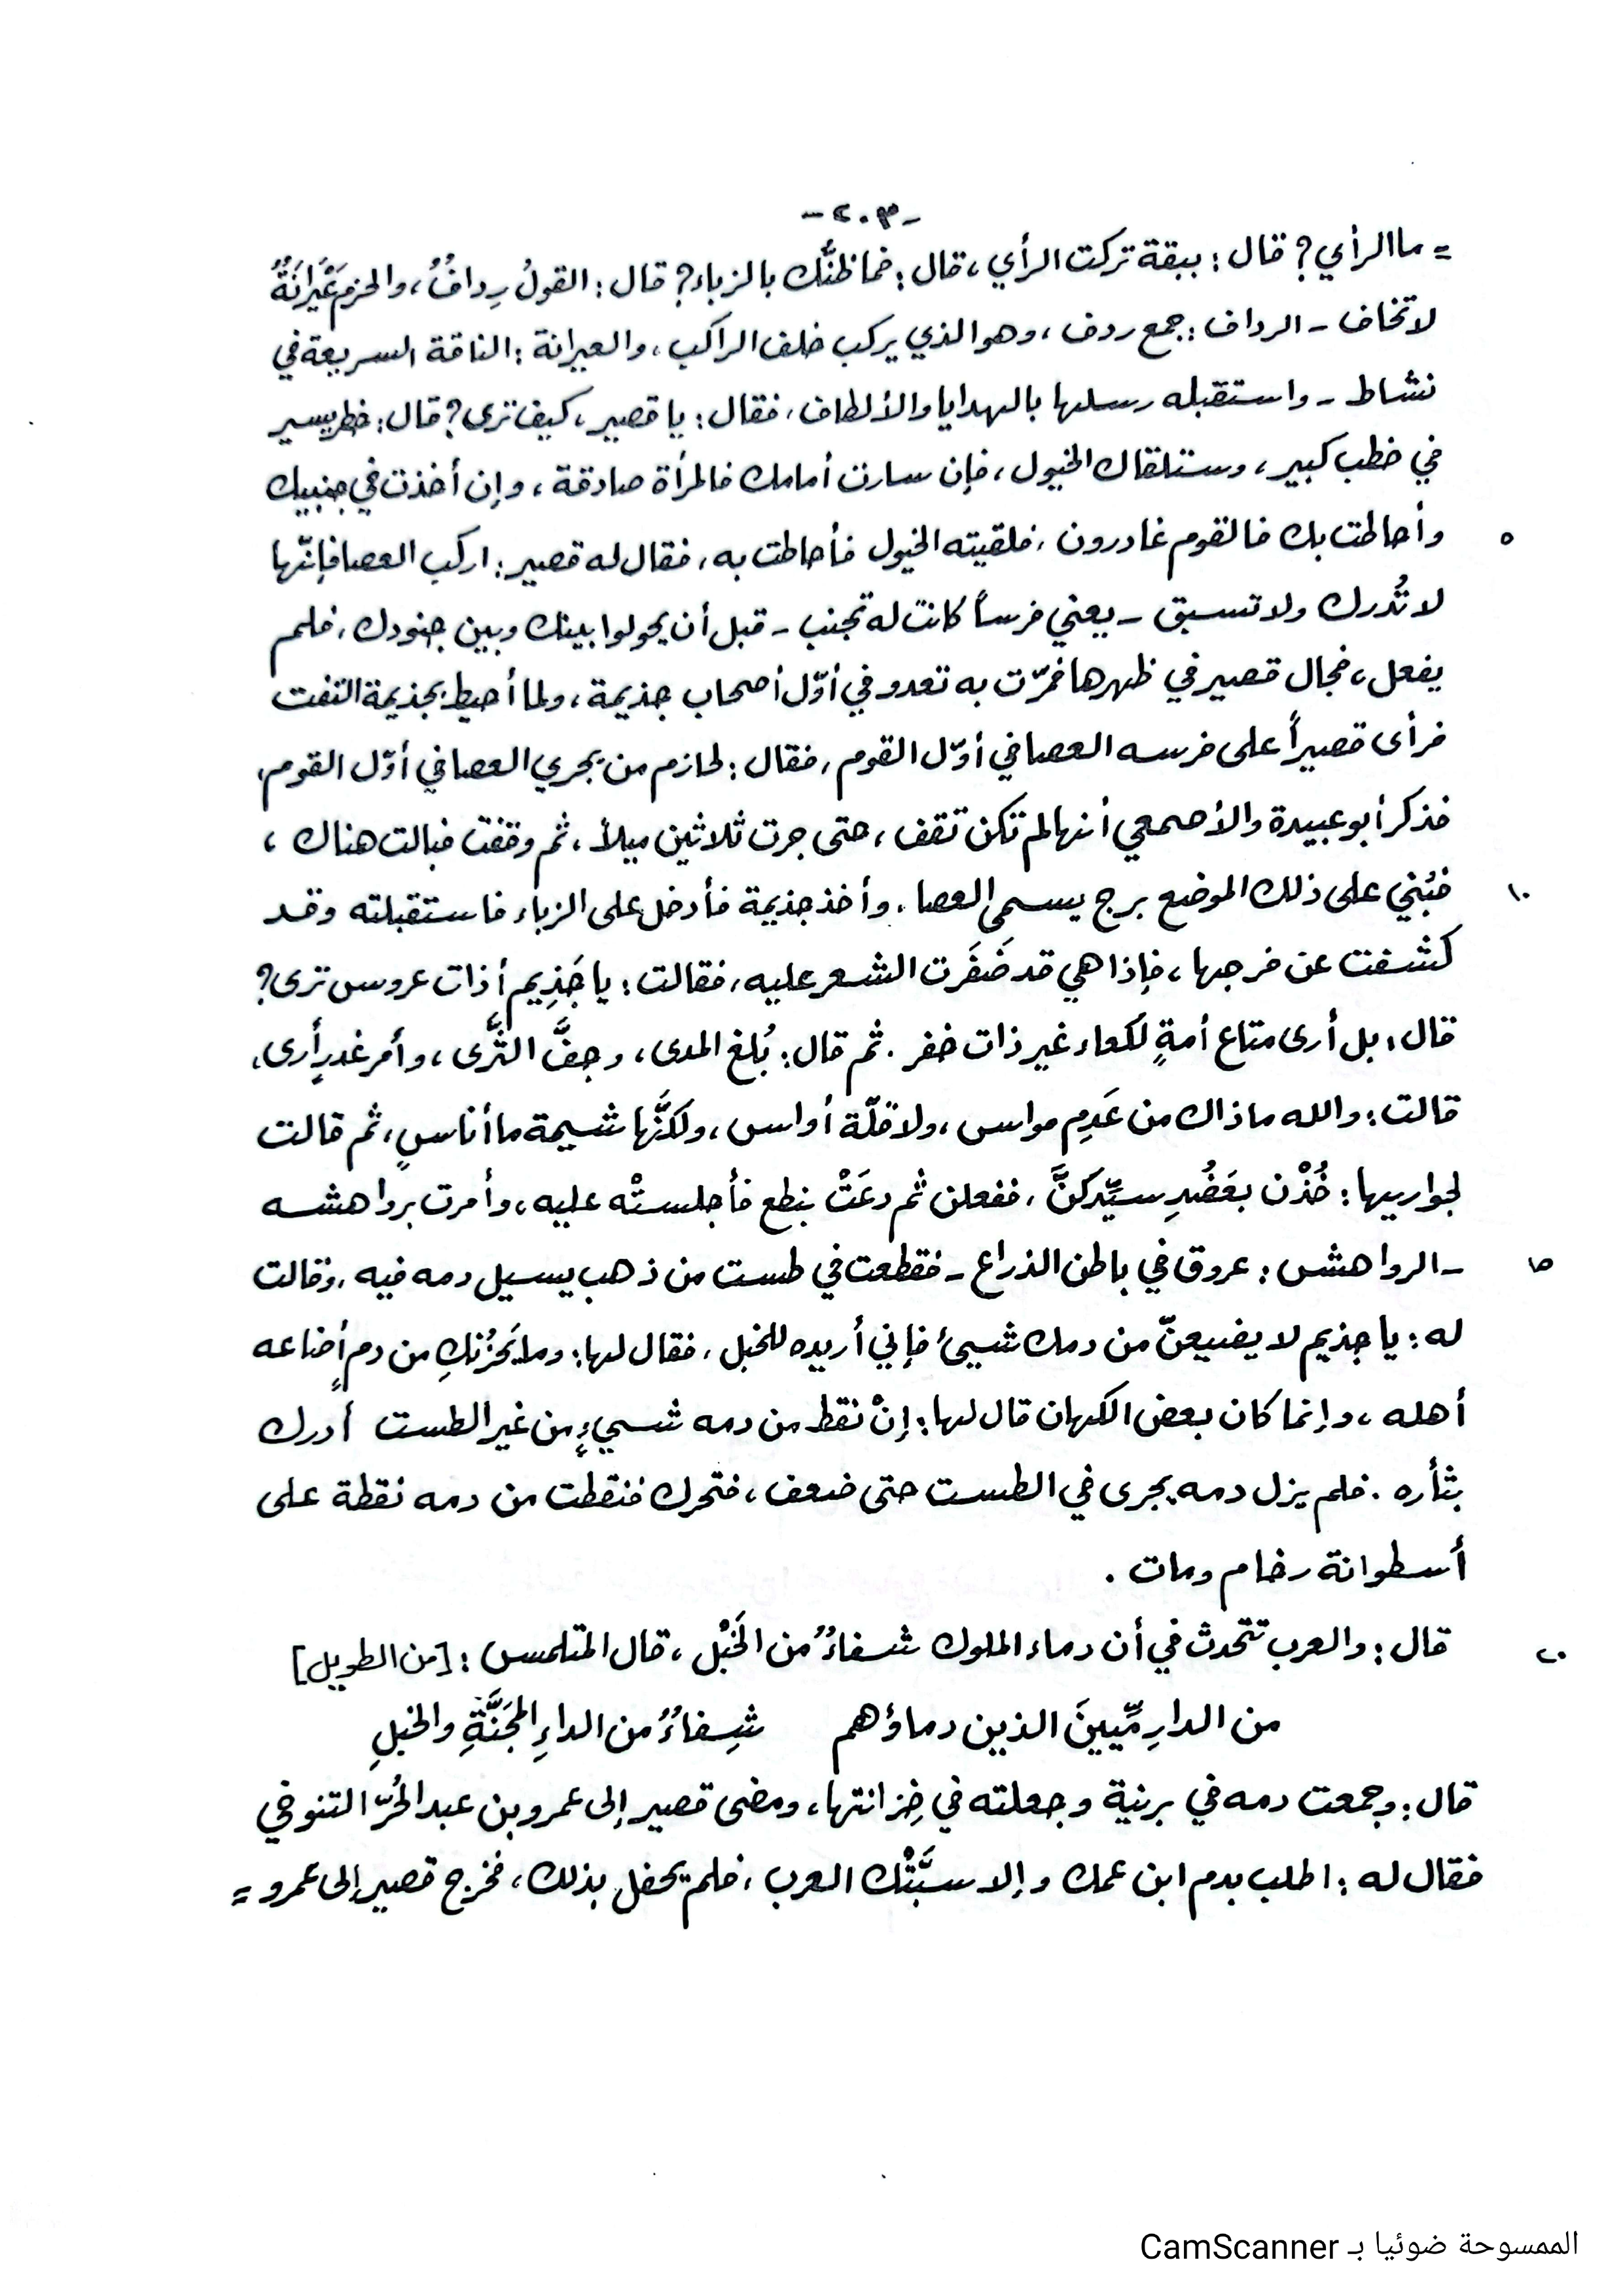 -٢٠٣-
= ما الرأي؟ قال: ببقة تركت الرأي، قال: فما ظنُّك بالزباء؟ قال: القولُ رِدافٌ، والحزم عَيْرانَةٌ
لا تخاف - الرداف: جمع ردف، وهو الذي يركب خلف الراكب، والعيرانة: الناقة السريعة في
نشاط - واستقبله رسلها بالهدايا والألطاف، فقال: يا قصير، كيف ترى؟ قال: خطر يسير
في خطب كبير، وستلقاك الخيول، فإن سارت أمامك فالمرأة صادقة، وإن أخذت في جنبيك
٥ وأحاطت بك فالقوم غادرون، فلقيته الخيول فأحاطت به، فقال له قصير: اركب العصا فإنّها
لا تُدرك ولا تسبق - يعني فرساً كانت له تجنب - قبل أن يحولوا بينك وبين جنودك، فلم
يفعل، فجال قصير في ظهرها فمرّت به تعدو في أوّل أصحاب جذيمة، ولما أحيط بجذيمة التفت
فرأى قصيراً على فرسه العصا في أوّل القوم، فقال: لحازم من يجري العصا في أوّل القوم،
فذكر أبو عبيدة والأصمعي أنها لم تكن تقف، حتى جرت ثلاثين ميلاً، ثم وقفت فبالت هناك،
١٠ فبُني على ذلك الموضع برج يسمى العصا. وأخذ جذيمة فأدخل على الزباء فاستقبلته وقد
كشفت عن فرجها، فإذا هي قد ضَفَرت الشعر عليه، فقالت: يا جَذِيم أذات عروس ترى؟
قال: بل أرى متاع أمةٍ لكعاء غير ذات خفر. ثم قال: بُلغ المدى، وجفَّ الثَّرى، وأمر غدرٍ أرى،
قالت: والله ما ذاك من عَدِم مواس، ولا قلّة أواس، ولكنَّها شيمة ما أناسٍ، ثم قالت
لجواريها: خُذْن بعَضُدِ سيِّدكنَّ، ففعلن ثم دعَتْ بنطع فأجلستْه عليه، وأمرت برواهشه
١٥ - الرواهش: عروق في باطن الذراع - فقطعت في طست من ذهب يسيل دمه فيه، وقالت
له: يا جذيم لا يضيعنّ من دمك شيئ فإني أريده للخبل، فقال لها: وما يَحْزُنكِ من دمٍ أضاعه
أهله، وإنما كان بعض الكهان قال لها: إنْ نقط من دمه شيءٍ من غير الطست أدرك
بثأره. فلم يزل دمه يجرى في الطست حتى ضعف، فتحرك فنقطت من دمه نقطة على
أسطوانة رخام ومات.
٢٠ قال: والعرب تتحدث في أن دماء الملوك شفاءٌ من الخَبْل، قال المتلمس: [من الطويل]
من الدارِمِّيينَ الذين دماؤهم شِفاءٌ من الداءِ المجَنَّةِ والخبلِ
قال: وجمعت دمه في برنية وجعلته في خِزانتها، ومضى قصير إلى عمرو بن عبد الحُرّ التنوخي
فقال له: اطلب بدم ابن عمك وإلا سبَّتْك العرب، فلم يحفل بذلك، فخرج قصير إلى عمرو =
الممسوحة ضوئيا بـ CamScanner